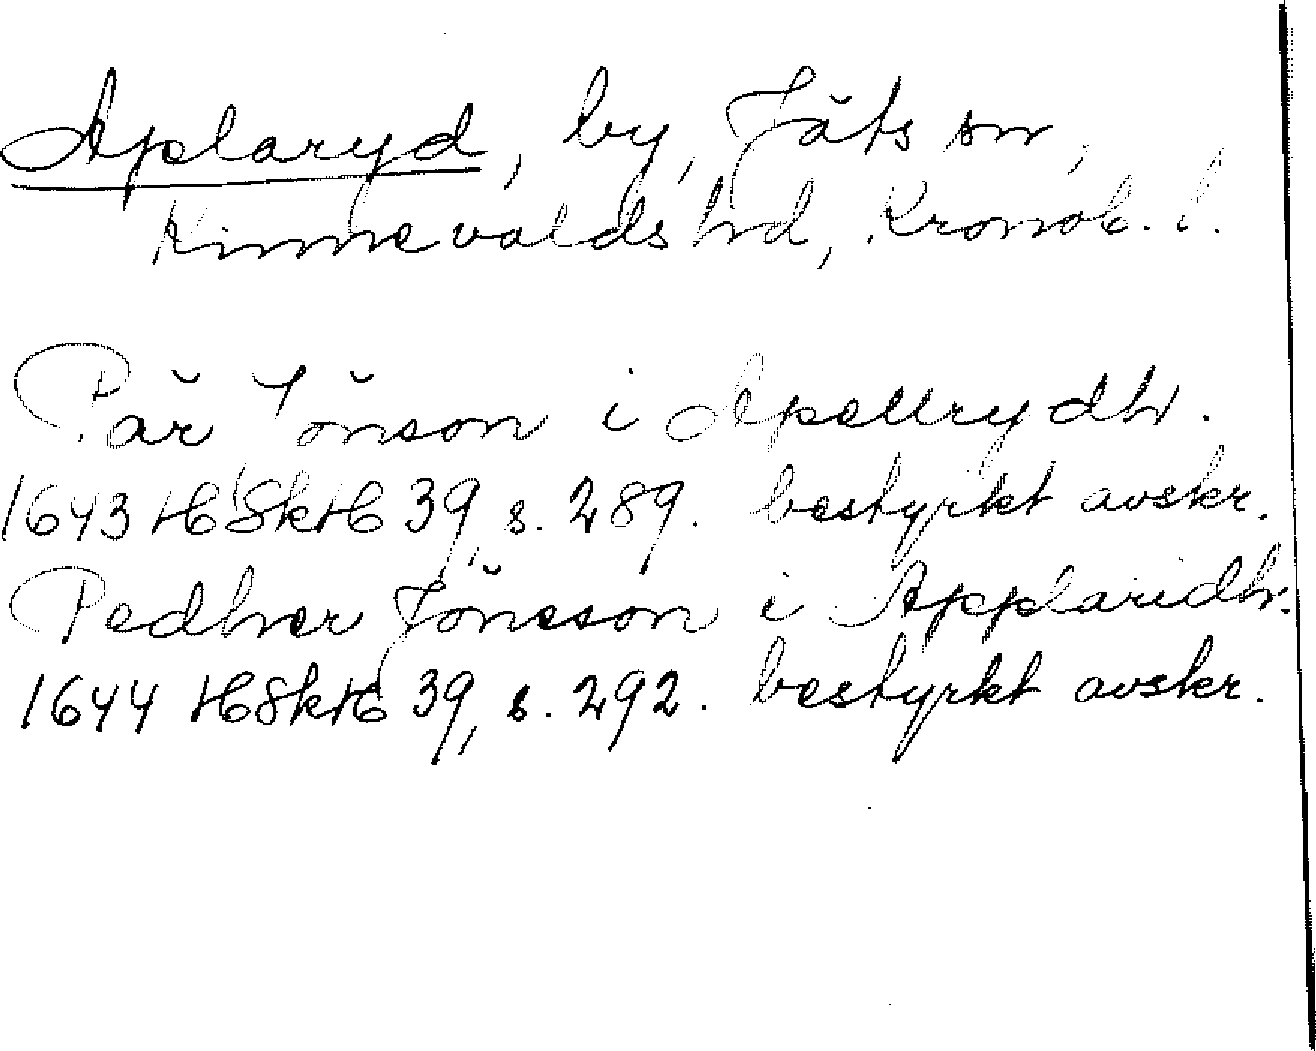 Aplaryd, by, Jäts sn,
Kinnevalds hd, Kronob. l.
Pär Jönson i Apellrydh.
1643 HSkH 39, s. 289. bestyrkt avskr.
Pedher Jöneson i Applaridh.
1644 HSkH 39, s. 292. bestyrkt avskr.